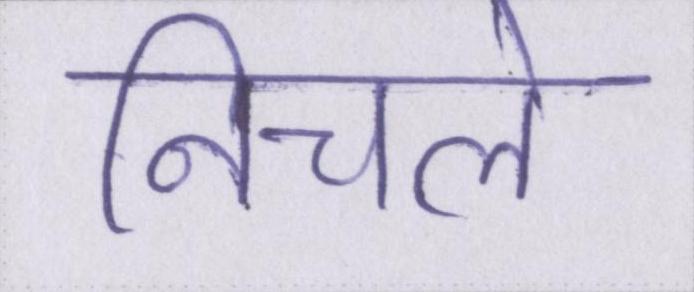 निचले